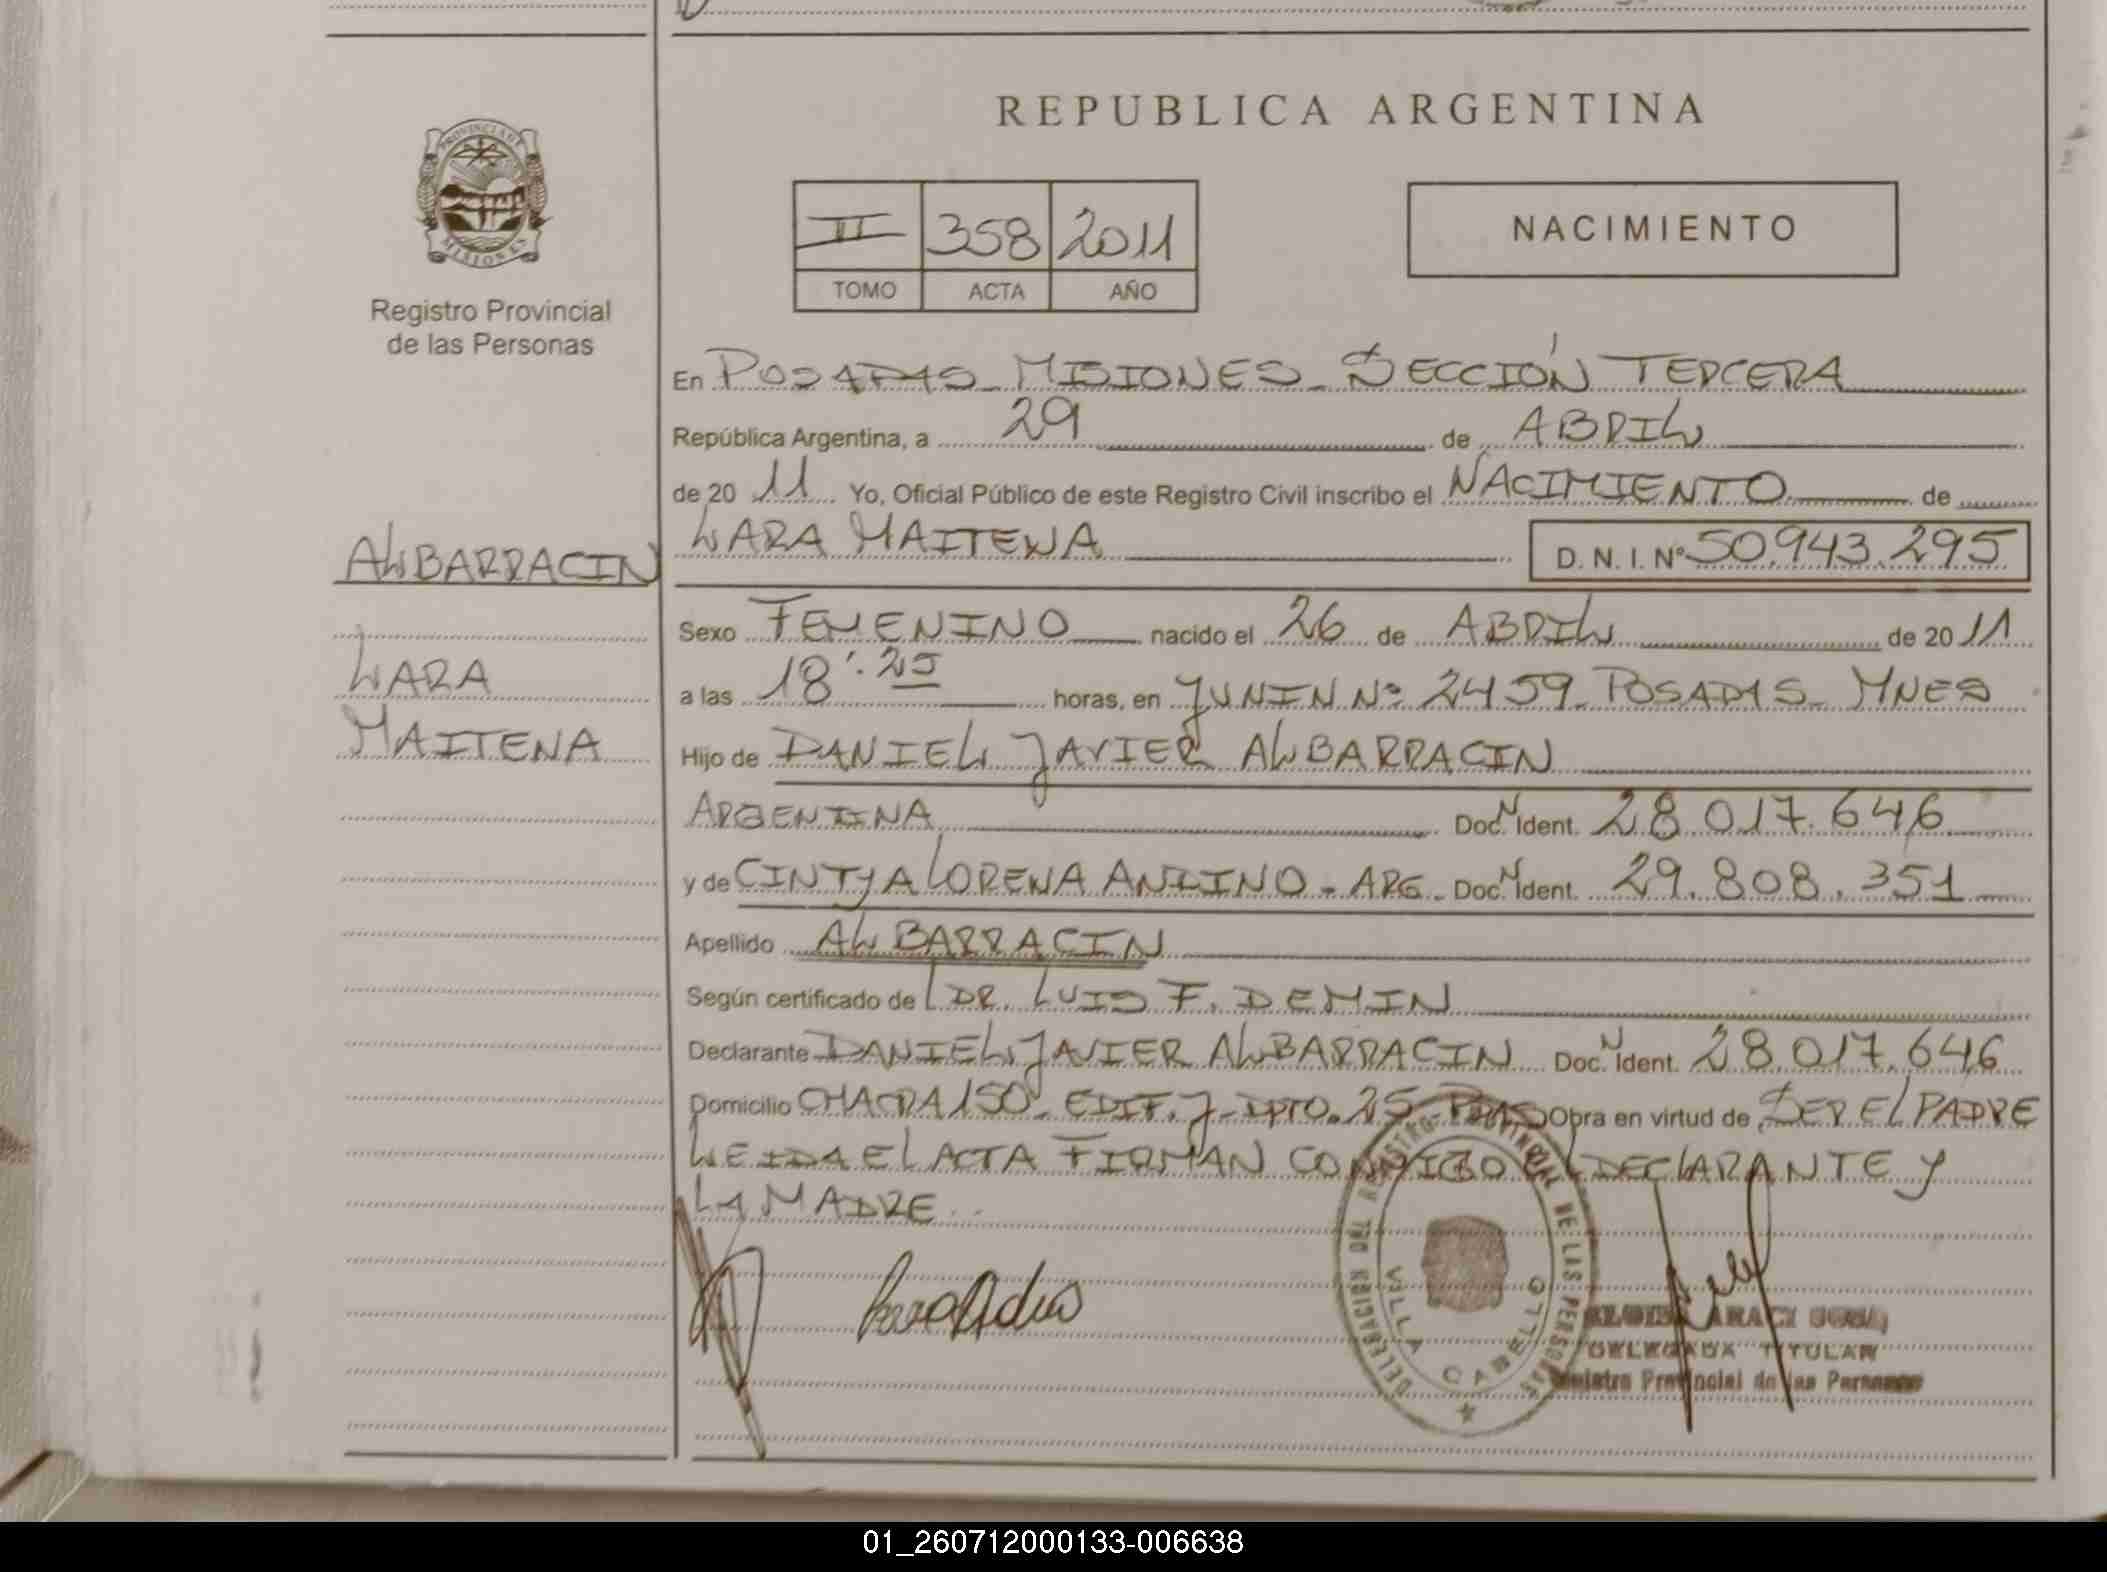 REPUBLICA ARGENTINA
PROVINCIA DE MISIONES
Registro Provincial
de las Personas
II 358 2011
TOMO ACTA AÑO
NACIMIENTO
En POSADAS_MISIONES_SECCIÓN TERCERA
República Argentina, a 29 de ABRIL
de 20 11 Yo, Oficial Público de este Registro Civil inscribo el NACIMIENTO de
LARA MAITENA D. N. I. Nº 50.943.295
ALBARRACIN
LARA
MAITENA
Sexo FEMENINO nacido el 26 de ABRIL de 20 11
a las 18:25 horas, en JUNIN Nº 2459_POSADAS_MNES
Hijo de DANIEL JAVIER ALBARRACIN
ARGENTINA Doc. N Ident. 28.017.646
y de CINTYA LORENA ANDINO - ARG - Doc. N Ident. 29.808.351
Apellido ALBARRACIN
Según certificado de L DR. LUIS F. DEMIN
Declarante DANIEL JAVIER ALBARRACIN Doc. N Ident. 28.017.646
Domicilio CHACRA 150_EDIF. J_DPTO. 25_PDAS Obra en virtud de SER EL PADRE
LEIDA EL ACTA FIRMAN CONMIGO EL DECLARANTE Y
LA MADRE
DELEGACION DEL REGISTRO PROVINCIAL DE LAS PERSONAS
VILLA CABELLO
ARACI
DELEGADA TITULAR
Registro Provincial de las Personas
01_260712000133-006638